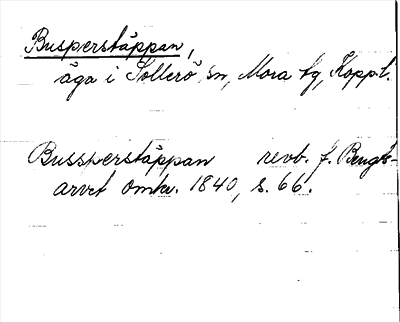 Busperstäppan,
äga i Sollerö sn, Mora tg, Kopp.l.
Bussperstäppan revb. f. Bengts-
arvet omkr. 1840, s. 66.